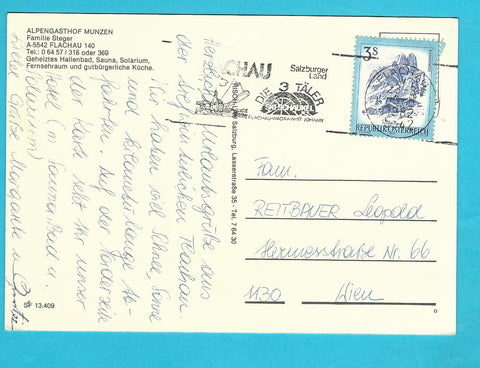 ALPENGASTHOF MUNZEN
Familie Steger
A-5542 FLACHAU 140
Tel.: 0 64 57 / 318 oder 369
Geheiztes Hallenbad, Sauna, Solarium,
Fernsehraum und gutbürgerliche Küche.
Herzliche Urlaubsgrüße aus
der
Wir haben viel Sonne, Schnee
und kilometerlange Ab-
fahrten. Auf der Vorderseite
der Karte seht Ihr unser
Hotel (m. Sauna, Bad u.
Solarium)
viele Grüße Margarethe u.
SF 13.409
Salzburg, Lasserstraße 35 - Tel. 7 64 30
CHAU
Salzburger
Land
DIE 3 TÄLER
SKISCHAUKEL
FLACHAU-WAGRAIN-ST. JOHANN
3 S
REPUBLIK ÖSTERREICH
FLACHAU
Fam.
REITBAUER Leopold
Hermesstraße Nr. 66
1130 Wien